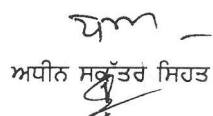 ਅਧੀਨ ਸਕੱਤਰ ਸਿਹਤ